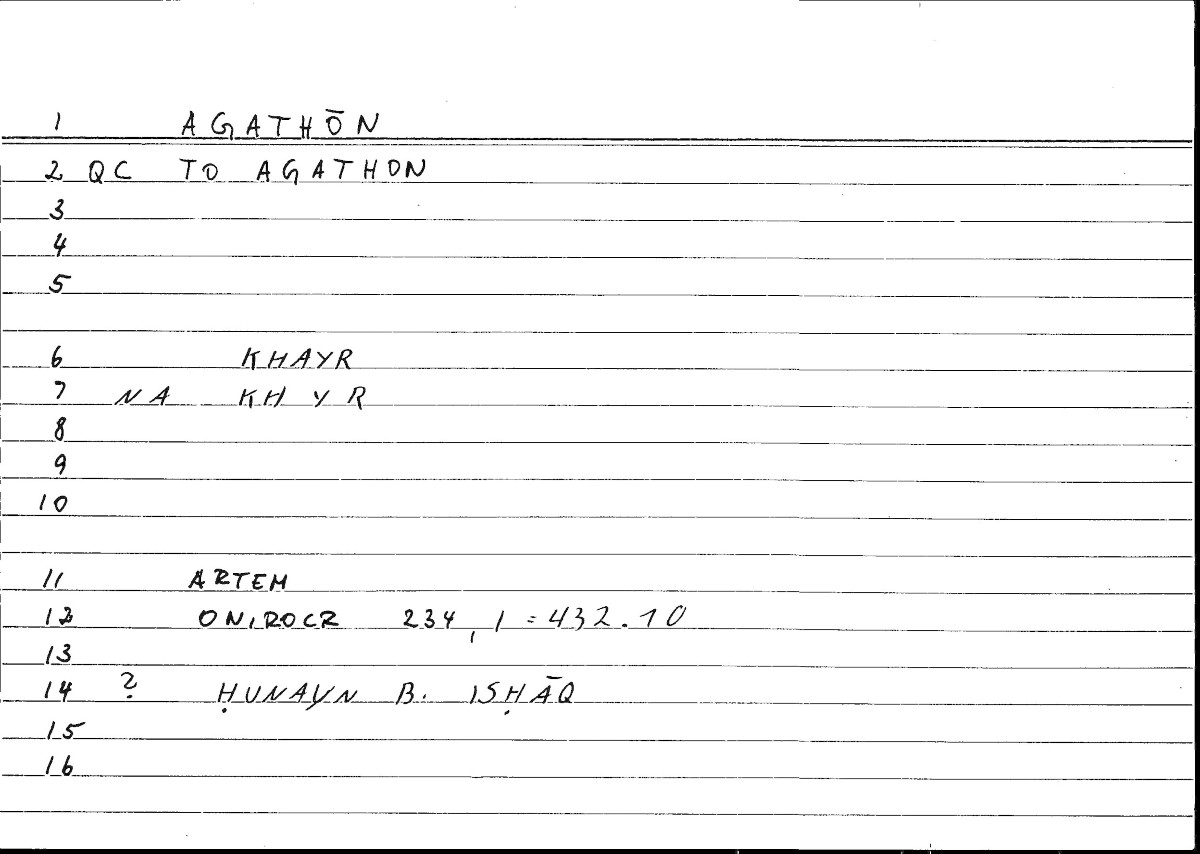 1 AGATHŌN
2 QC TO AGATHON
3
4
5
6 KHAYR
7 NA KHYR
8
9
10
11 ARTEM
12 ONIROCR 234,1=432.10
13
14 ? ḤUNAYN B. ISḤĀQ
15
16